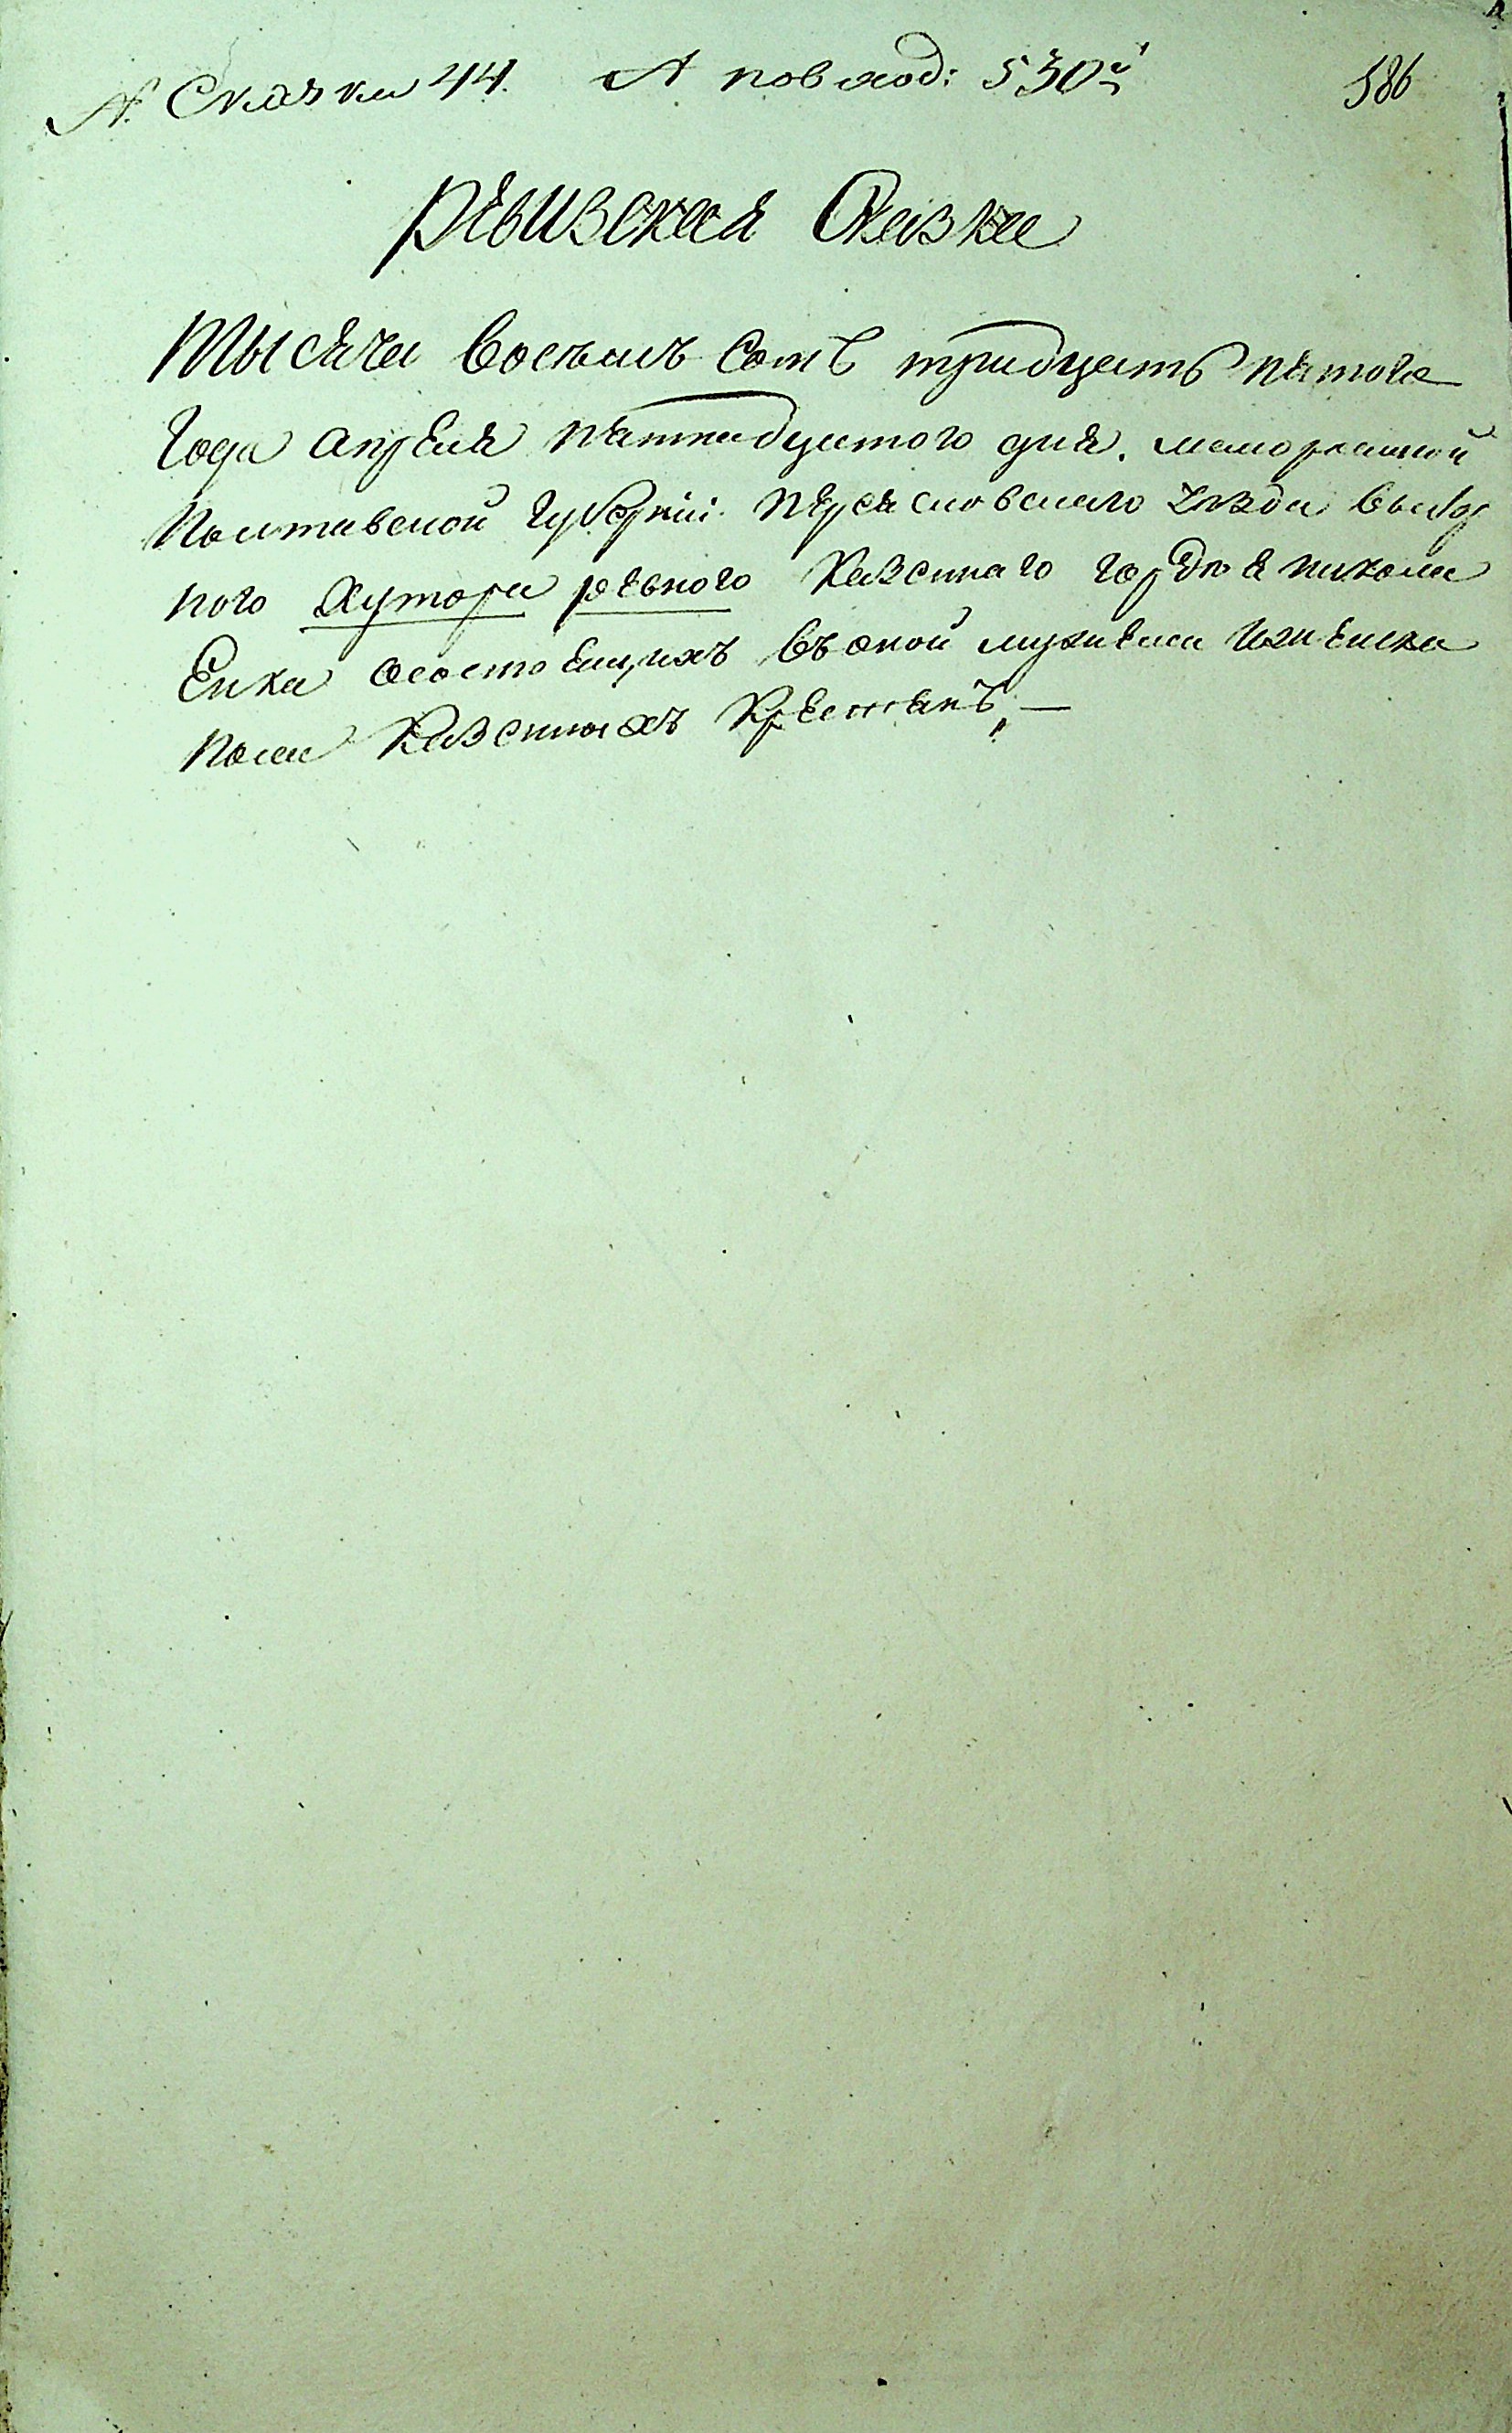 № Сказки 44. № повход: 530й
586
Ревизская Сказка
Тысяча восемь Сотъ тридцать пятого
Года апреля пятнадцатого дня. малороссийской
Полтавской Губернии Переясловского уезда
ного Хутора ревного Казенного
Енка состоящихъ въ оной мужеска и женска
пола Казенныхъ Крестянъ, —